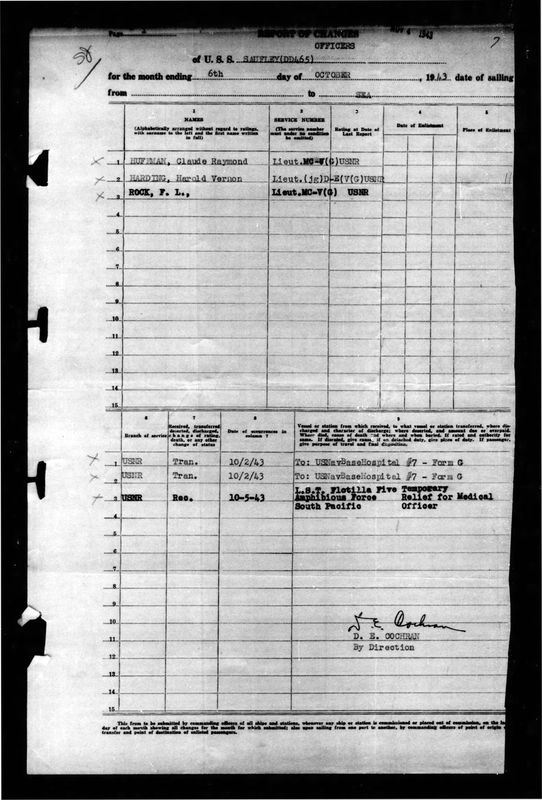 Page REPORT OF CHANGES NOV 4 1943
OFFICERS 7
of U. S. S. SAUFLEY(DD465)
for the month ending 6th day of OCTOBER , 1943 date of sailing
from to SEA
1 2 3 4 5
NAMES
(Alphabetically arranged without regard to ratings, with surname to the left and the first name written in full)
SERVICE NUMBER
(The service number must under no condition be omitted)
Rating at Date of Last Report
Date of Enlistment
Place of Enlistment
x 1 HUFFMAN, Claude Raymond Lieut.MC-V(G)USNR
x 2 HARDING, Harold Vernon Lieut.(jg)D-E(V(G)USNR
x 3 ROCK, F. L., Lieut.MC-V(G) USNR
4
5
6
7
8
9
10
11
12
13
14
15
6 7 8 9
Branch of service
Received, transferred deserted, discharged, change of rating, death, or any other change of status
Date of occurrences in column 7
Vessel or station from which received, to what vessel or station transferred, where discharged and character of discharge; where deserted, and amount due or overpaid. Where died, cause of death and where and when buried. If rated and authority for same. If disrated, give cause. If on detached duty, give place of duty. If passenger, give purpose of travel and final disposition.
x 1 USNR Tran. 10/2/43 To: USNavBaseHospital #7 - Form G
x 2 USNR Tran. 10/2/43 To: USNavBaseHospital #7 - Form G
L.S.T. Flotilla Five Temporary
x 3 USNR Rec. 10-5-43 Amphibious Force Relief for Medical
South Pacific Officer
4
5
6
7
8
9
10
11
12
13
14
15
D. E. Cochran
D. E. COCHRAN
By Direction
This form to be submitted by commanding officers of all ships and stations, whenever any ship or station is commissioned or placed out of commission, on the
day of each month showing all changes for the month for which submitted; also upon sailing from one port to another, by commanding officers of point of origin
transfer and point of destination of enlisted passengers.